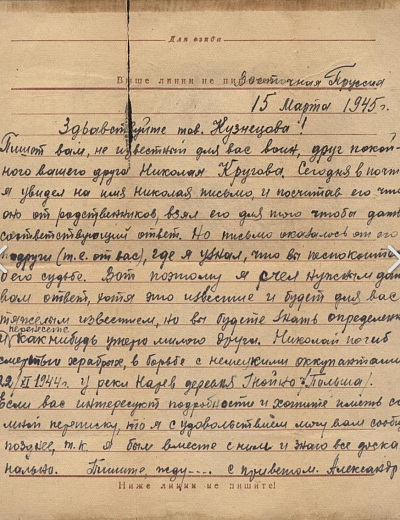 Для сгиба
Выше линии не пи Восточная Пруссия
15 Марта 1945 г.
Здравствуйте тов. Кузнецова!
Пишет вам, не известный для вас воин, друг покой-
ного вашего друга Николая Кругова. Сегодня в почте
я увидел на имя Николая письмо, и посчитав его что
оно от родственников, взял его для того чтобы дать
соответствующий ответ. Но письмо оказалось от его
други (т.е. от вас), где я узнал, что вы беспокоитесь
о его судьбе. Вот поэтому я счел нужным дать
вам ответ, хотя это известие и будет для вас
тяжелым известием, но вы будете знать определенно
перенесете
и как нибудь утерю милого друга. Николай погиб
смертью храбрых, в борьбе с немецкими оккупантами
22/XI 1944 г. у реки Нарев деревня Гнойно (Польша).
Если вас интересуют подробности и хотите иметь со
мной переписку, то я с удовольствием могу вам сообщ
позднее, т.к. я был вместе с ним и знаю все доска
нально. Пишите, жду.... с приветом. Александр
Ниже линии не пишите!